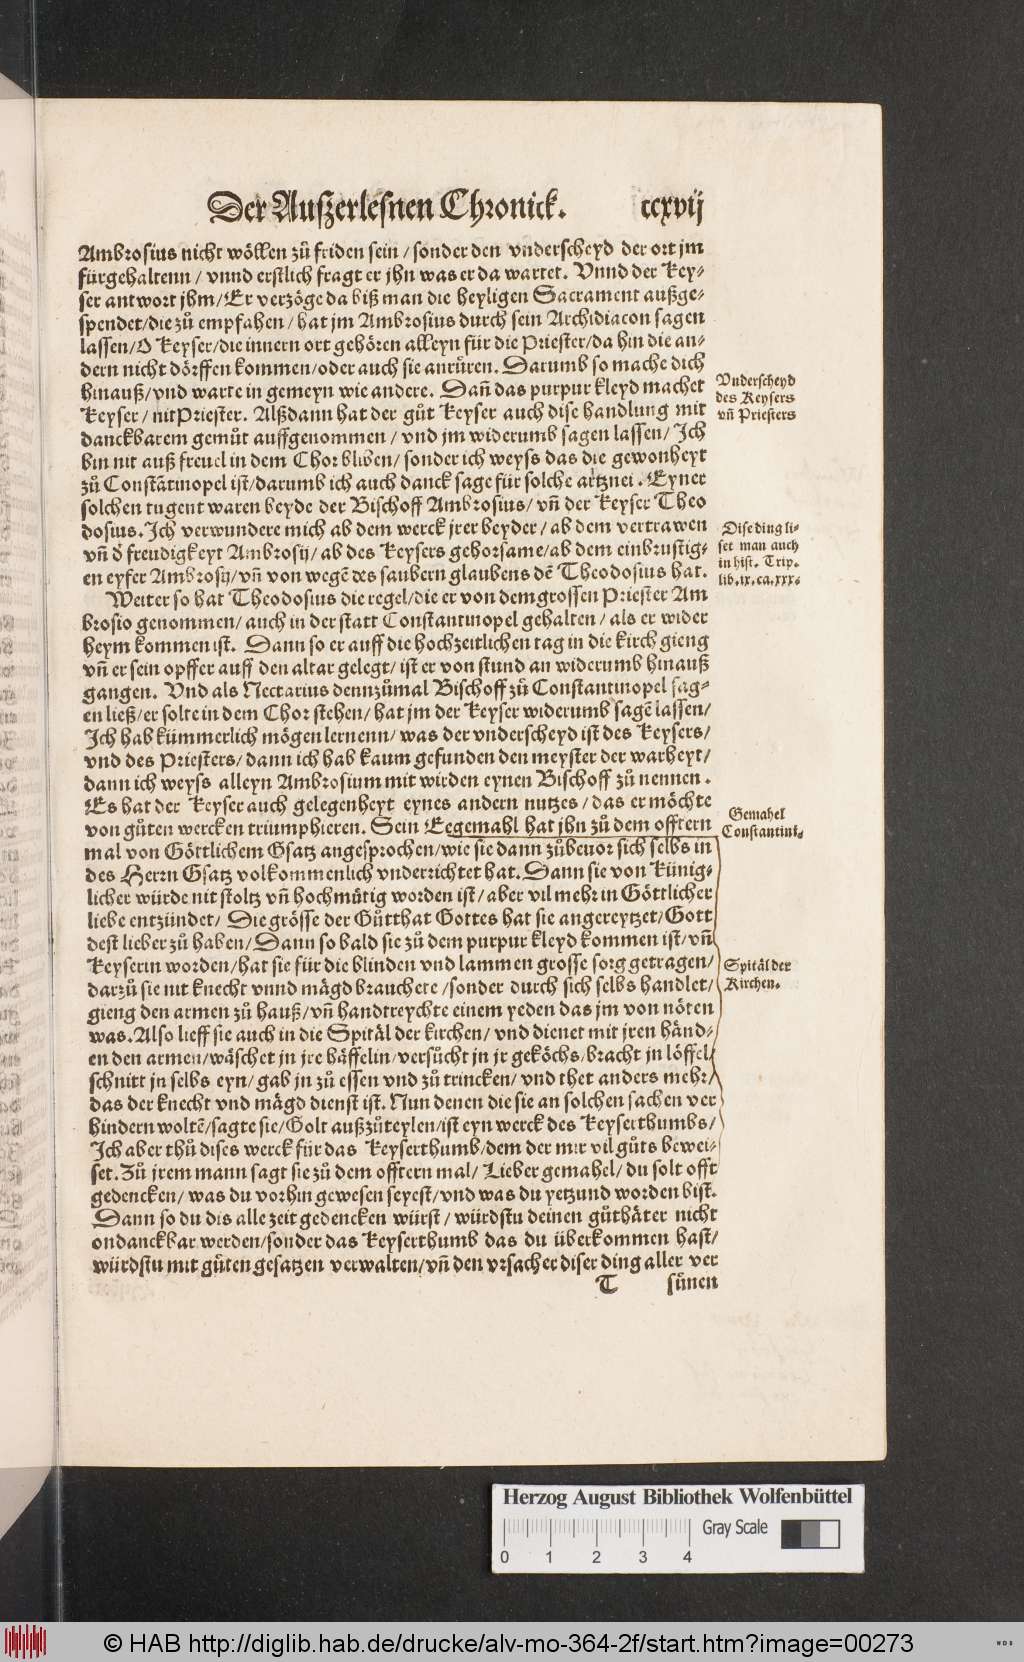 Der Außerlesnen Chronick. ccxvij
Ambrosius nicht wöllen zů friden sein / sonder den vnderscheyd der ort jm
fürgehaltenn / vnnd erstlich fragt er jhn was er da wartet. Vnnd der Key-
ser antwort jhm / Er verzöge da biß man die heyligen Sacrament außge-
spendet / die zů empfahen / hat jm Ambrosius durch sein Archidiacon sagen
lassen / O Keyser / die innern ort gehören alleyn für die Priester / da hin die an-
dern nicht dörffen kommen / oder auch sie anrüren. Darumb so mache dich
hinauß / vnd warte in gemeyn wie andere. Dañ das purpur kleyd machet
Keyser / nit Priester. Alßdann hat der gůt Keyser auch dise handlung mit
danckbarem gemůt auffgenommen / vnd jm widerumb sagen lassen / Ich
bin nit auß freuel in dem Chor bliben / sonder ich weyss das die gewonheyt
zů Constãtinopel ist / darumb ich auch danck sage für solche artznei. Eyner
solchen tugent waren beyde der Bischoff Ambrosius / vñ der Keyser Theo
dosius. Ich verwundere mich ab dem werck jrer beyder / ab dem vertrawen
vñ d̃ freudigkeyt Ambrosij / ab des Keysers gehorsame / ab dem einbrustig-
en eyfer Ambrosij / vñ von wegẽ des saubern glaubens dẽ Theodosius hat.
Weiter so hat Theodosius die regel / die er von dem grossen Priester Am
brosio genommen / auch in der statt Constantinopel gehalten / als er wider
heym kommen ist. Dann so er auff die hochzeitlichen tag in die kirch gieng
vñ er sein opffer auff den altar gelegt / ist er von stund an widerumb hinauß
gangen. Vnd als Nectarius dennzůmal Bischoff zů Constantinopel sag-
en ließ / er solte in dem Chor stehen / hat jm der Keyser widerumb sagẽ lassen /
Ich hab kümmerlich mögen lernenn / was der vnderscheyd ist des Keysers /
vnd des Priesters / dann ich hab kaum gefunden den meyster der warheyt /
dann ich weyss alleyn Ambrosium mit wirden eynen Bischoff zů nennen.
Es hat der Keyser auch gelegenheyt eynes andern nutzes / das er möchte
von gůten wercken triumphieren. Sein Eegemahl hat jhn zů dem offtern
mal von Göttlichem Gsatz angesprochen / wie sie dann zůbeuor sich selbs in
des Herrn Gsatz volkommenlich vnderrichtet hat. Dann sie von Künig-
licher würde nit stoltz vñ hochmütig worden ist / aber vil mehr in Göttlicher
liebe entzündet / Die grösse der Gůtthat Gottes hat sie angereytzet / Gott
dest lieber zů haben / Dann so bald sie zů dem purpur kleyd kommen ist / vñ
Keyserin worden / hat sie für die blinden vnd lammen grosse sorg getragen /
darzů sie nit knecht vnnd mägd brauchete / sonder durch sich selbs handlet /
gieng den armen zů hauß / vñ handtreychte einem yeden das jm von nöten
was. Also lieff sie auch in die Spitäl der kirchen / vnd dienet mit jren händ-
en den armen / wäschet jn jre häffelin / versůcht jn jr geköchs / bracht jn löffel /
schnitt jn selbs eyn / gab jn zů essen vnd zů trincken / vnd thet anders mehr /
das der knecht vnd mägd dienst ist. Nun denen die sie an solchen sachen ver
hindern woltẽ / sagte sie / Golt außzůteylen / ist eyn werck des Keyserthumbs /
Ich aber thů dises werck für das Keyserthumb / dem der mir vil gůts bewei-
set. Zů jrem mann sagt sie zů dem offtern mal / Lieber gemahel / du solt offt
gedencken / was du vorhin gewesen seyest / vnd was du yetzund worden bist.
Dann so du dis alle zeit gedencken würst / würdstu deinen gůthäter nicht
ondanckbar werden / sonder das Keyserthumb das du überkommen hast /
würdstu mit gůten gesatzen verwalten / vñ den vrsacher diser ding aller ver
T sůnen
Vnderscheyd
des Keysers
vñ Priesters
Dise ding li-
set man auch
in hist. Trip.
lib. ix. ca. xxx.
Gemahel
Constantini.
Spitäl der
Kirchen.
Herzog August Bibliothek Wolfenbüttel
Gray Scale
0 1 2 3 4
© HAB http://diglib.hab.de/drucke/alv-mo-364-2f/start.htm?image=00273